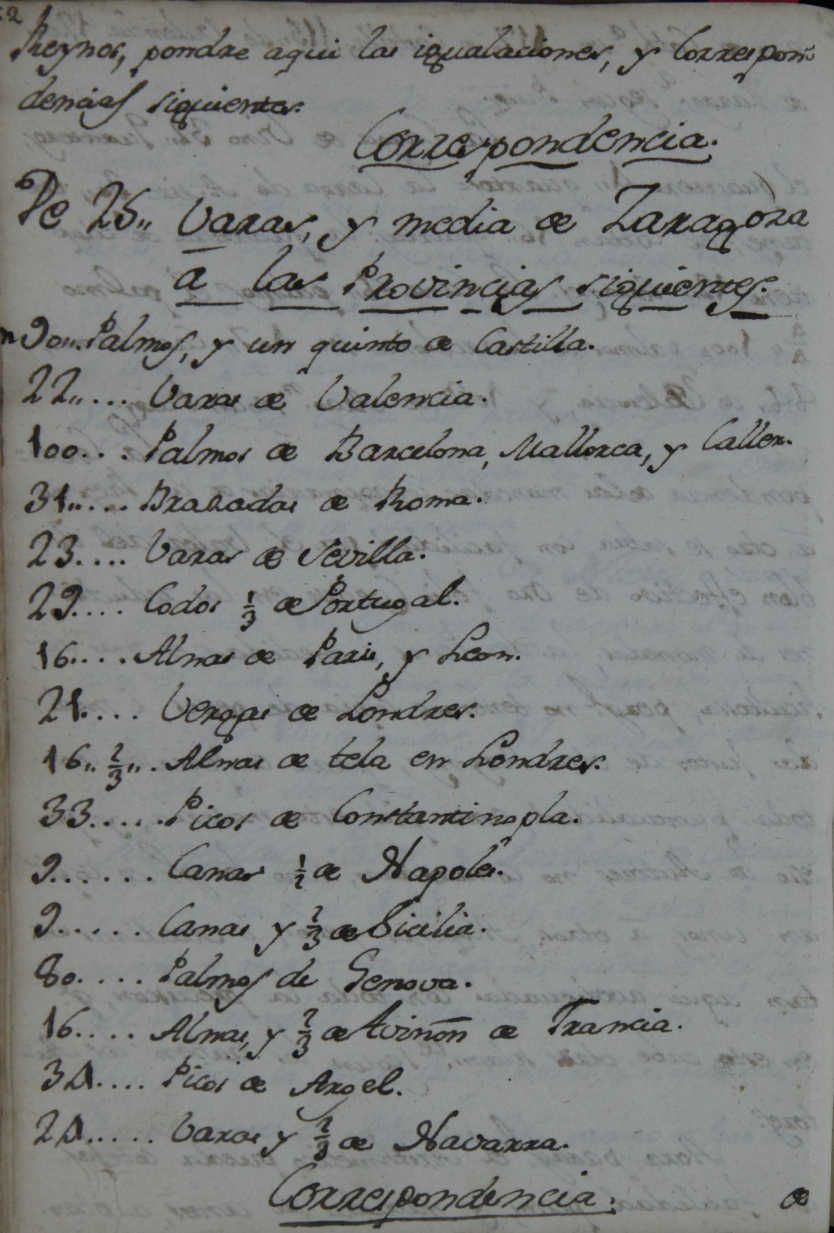 52
Reynos, pondre aqui las igualaciones, y Correspon=
dencias siguientes.
Correspondencia.
De 25,, Varas, y media de Zaragoza
a las Provincias siguientes.
90,,. Palmos, y un quinto de Castilla.
22,,... Varas de Valencia.
100... Palmos de Barcelona, Mallorca, y Caller.
31,,... Brazadas de Roma.
23.... Varas de Sevilla.
29.... Codos 1/3 de Portugal.
16.... Alnas de Paris, y Leon.
21.... Vergas de Londres.
16,, 2/3,,. Alnas de tela en Londres.
33..... Picos de Constantinopla.
9...... Canas 1/2 de Napoles.
9..... Canas y 2/3 de Sicilia.
80.... Palmos de Genova.
16.... Alnas, y 2/3 de Aviñon de Francia.
34.... Picos de Argel.
24..... Varas y 2/3 de Navarra.
Correspondencia. de